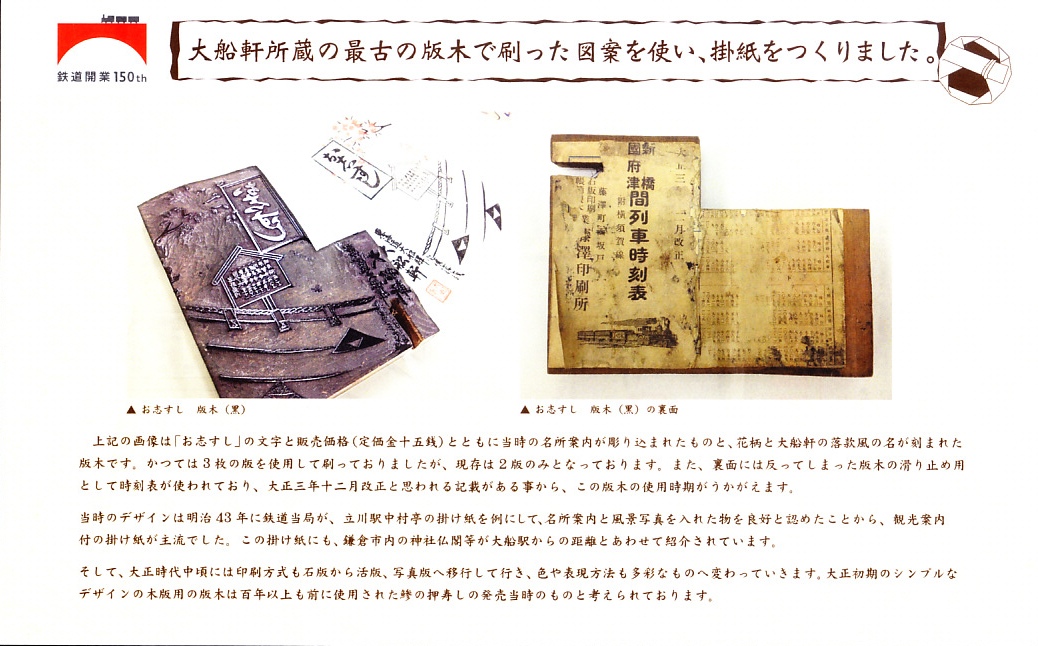 鉄道開業150th
大船軒所蔵の最古の版木で刷った図案を使い、掛紙をつくりました。
お志すし
大船軒
新橋
國府津
間列車時刻表
附横須賀線
月改正
藤澤町
坂戸
藤澤印刷所
▲ お志すし 版木（黒）
▲ お志すし 版木（黒）の裏面
上記の画像は「お志すし」の文字と販売価格（定価金十五銭）とともに当時の名所案内が彫り込まれたものと、花柄と大船軒の落款風の名が刻まれた
版木です。かつては３枚の版を使用して刷っておりましたが、現存は２版のみとなっております。また、裏面には反ってしまった版木の滑り止め用
として時刻表が使われており、大正三年十二月改正と思われる記載がある事から、この版木の使用時期がうかがえます。
当時のデザインは明治 43 年に鉄道当局が、立川駅中村亭の掛け紙を例にして、名所案内と風景写真を入れた物を良好と認めたことから、観光案内
付の掛け紙が主流でした。この掛け紙にも、鎌倉市内の神社仏閣等が大船駅からの距離とあわせて紹介されています。
そして、大正時代中頃には印刷方式も石版から活版、写真版へ移行して行き、色や表現方法も多彩なものへ変わっていきます。大正初期のシンプルな
デザインの木版用の版木は百年以上も前に使用された鯵の押寿しの発売当時のものと考えられております。